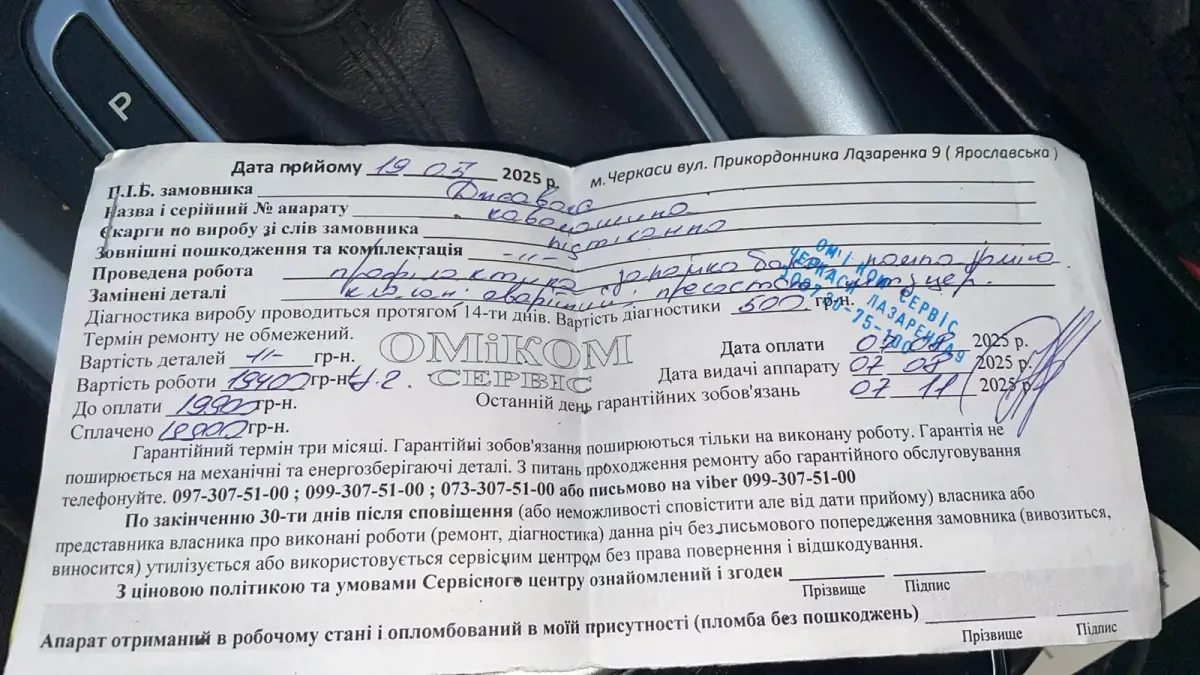 P
Дата прийому 19 07 2025 р. м.Черкаси вул. Прикордонника Лазаренка 9 ( Ярославська )
П.І.Б. замовника
Назва і серійний № апарату кавомашина
Скарги по виробу зі слів замовника
Зовнішні пошкодження та комплектація -"-
Проведена робота профілактика,
Замінені деталі клапан аварійний,
Діагностика виробу проводиться протягом 14-ти днів. Вартість діагностики 500 гр-н.
Термін ремонту не обмежений.
ОМіКОМ
СЕРВІС
ОМІКОМ СЕРВІС
ЧЕРКАСИ ЛАЗАРЕНКА 9
Вартість деталей -"- гр-н.
Вартість роботи 19400 гр-н
До оплати 19900 гр-н.
Сплачено 19900 гр-н.
Дата оплати 07 08 2025 р.
Дата видачі аппарату 07 08 2025 р.
Останній день гарантійних зобов'язань 07 11 2025 р.
Гарантійний термін три місяці. Гарантійні зобов'язання поширюються тільки на виконану роботу. Гарантія не
поширюється на механічні та енергозберігаючі деталі. З питань проходження ремонту або гарантійного обслуговування
телефонуйте. 097-307-51-00 ; 099-307-51-00 ; 073-307-51-00 або письмово на viber 099-307-51-00
По закінченню 30-ти днів після сповіщення (або неможливості сповістити але від дати прийому) власника або
представника власника про виконані роботи (ремонт, діагностика) данна річ без письмового попередження замовника (вивозиться,
виноситься) утилізується або використовується сервісним центром без права повернення і відшкодування.
З ціновою політикою та умовами Сервісного центру ознайомлений і згоден
Прізвище Підпис
Апарат отриманий в робочому стані і опломбований в моїй присутності (пломба без пошкоджень)
Прізвище Підпис